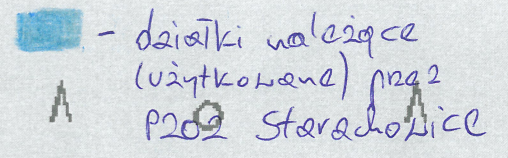 - działki należące
(użytkowane) przez
PZOZ Starachowice